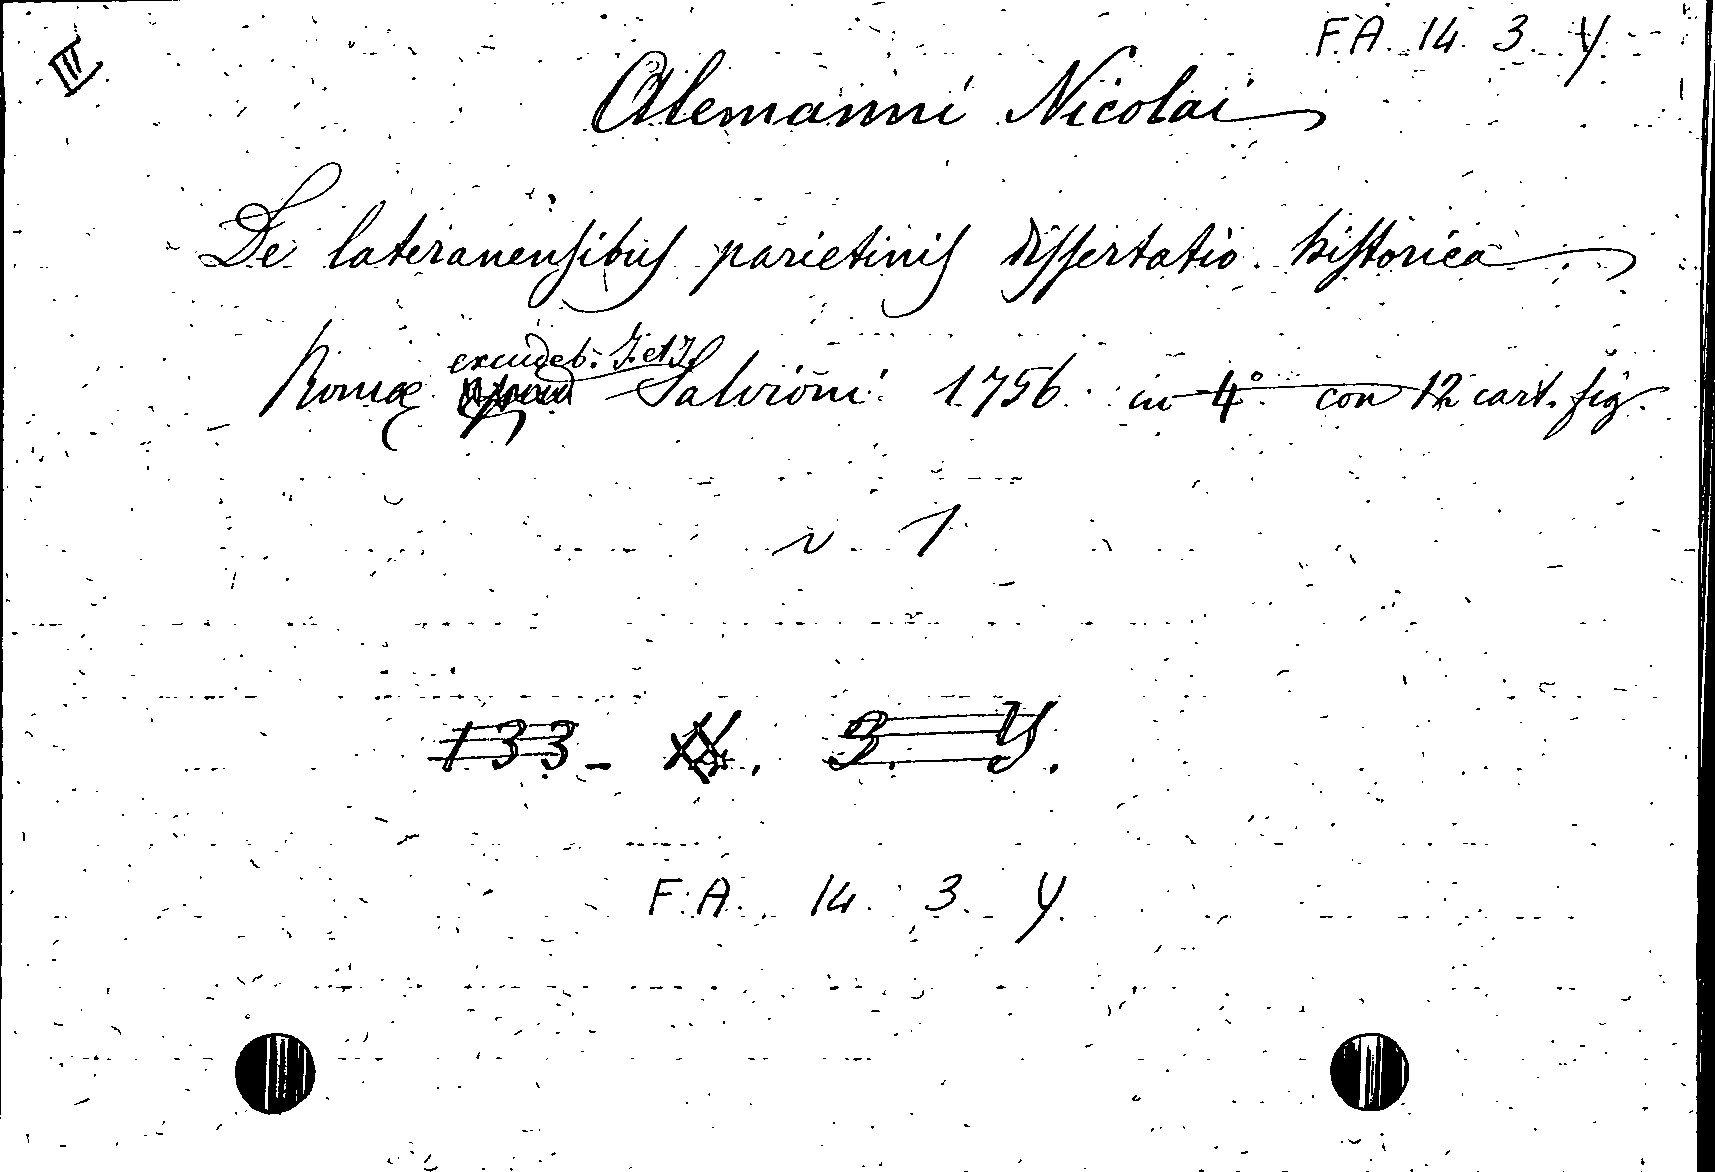 F.A. 14. 3. Y.
III
Alemanni Nicolai
De lateranensibus parietinis dissertatio historica
excudeb. J. et J.
Romæ apud Salvioni 1756. in 4° con 12 cart. fig.
v 1
133 - . 3. Y.
F. A. 14. 3. Y.